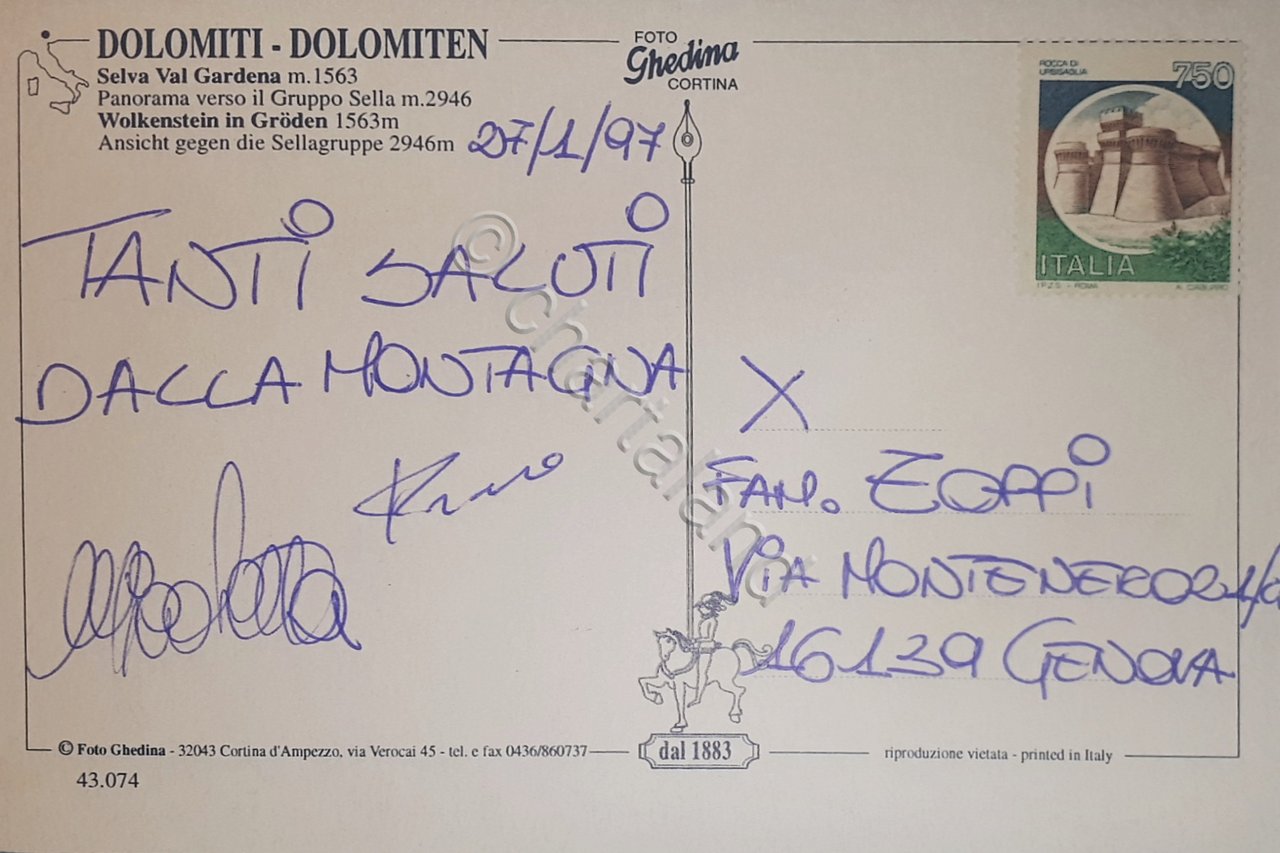 DOLOMITI - DOLOMITEN
Selva Val Gardena m.1563
Panorama verso il Gruppo Sella m.2946
Wolkenstein in Gröden 1563m
Ansicht gegen die Sellagruppe 2946m
27/1/97
FOTO
Ghedina
CORTINA
ROCCA DI
URBISAGLIA
750
ITALIA
I.P.Z.S. - ROMA
TANTI SALUTI
DALLA MONTAGNA
X
FAM. ZOPPI
VIA MONTENERO
16139 GENOVA
© Foto Ghedina - 32043 Cortina d'Ampezzo, via Verocai 45 - tel. e fax 0436/860737
dal 1883
riproduzione vietata - printed in Italy
43.074
© chartaliana